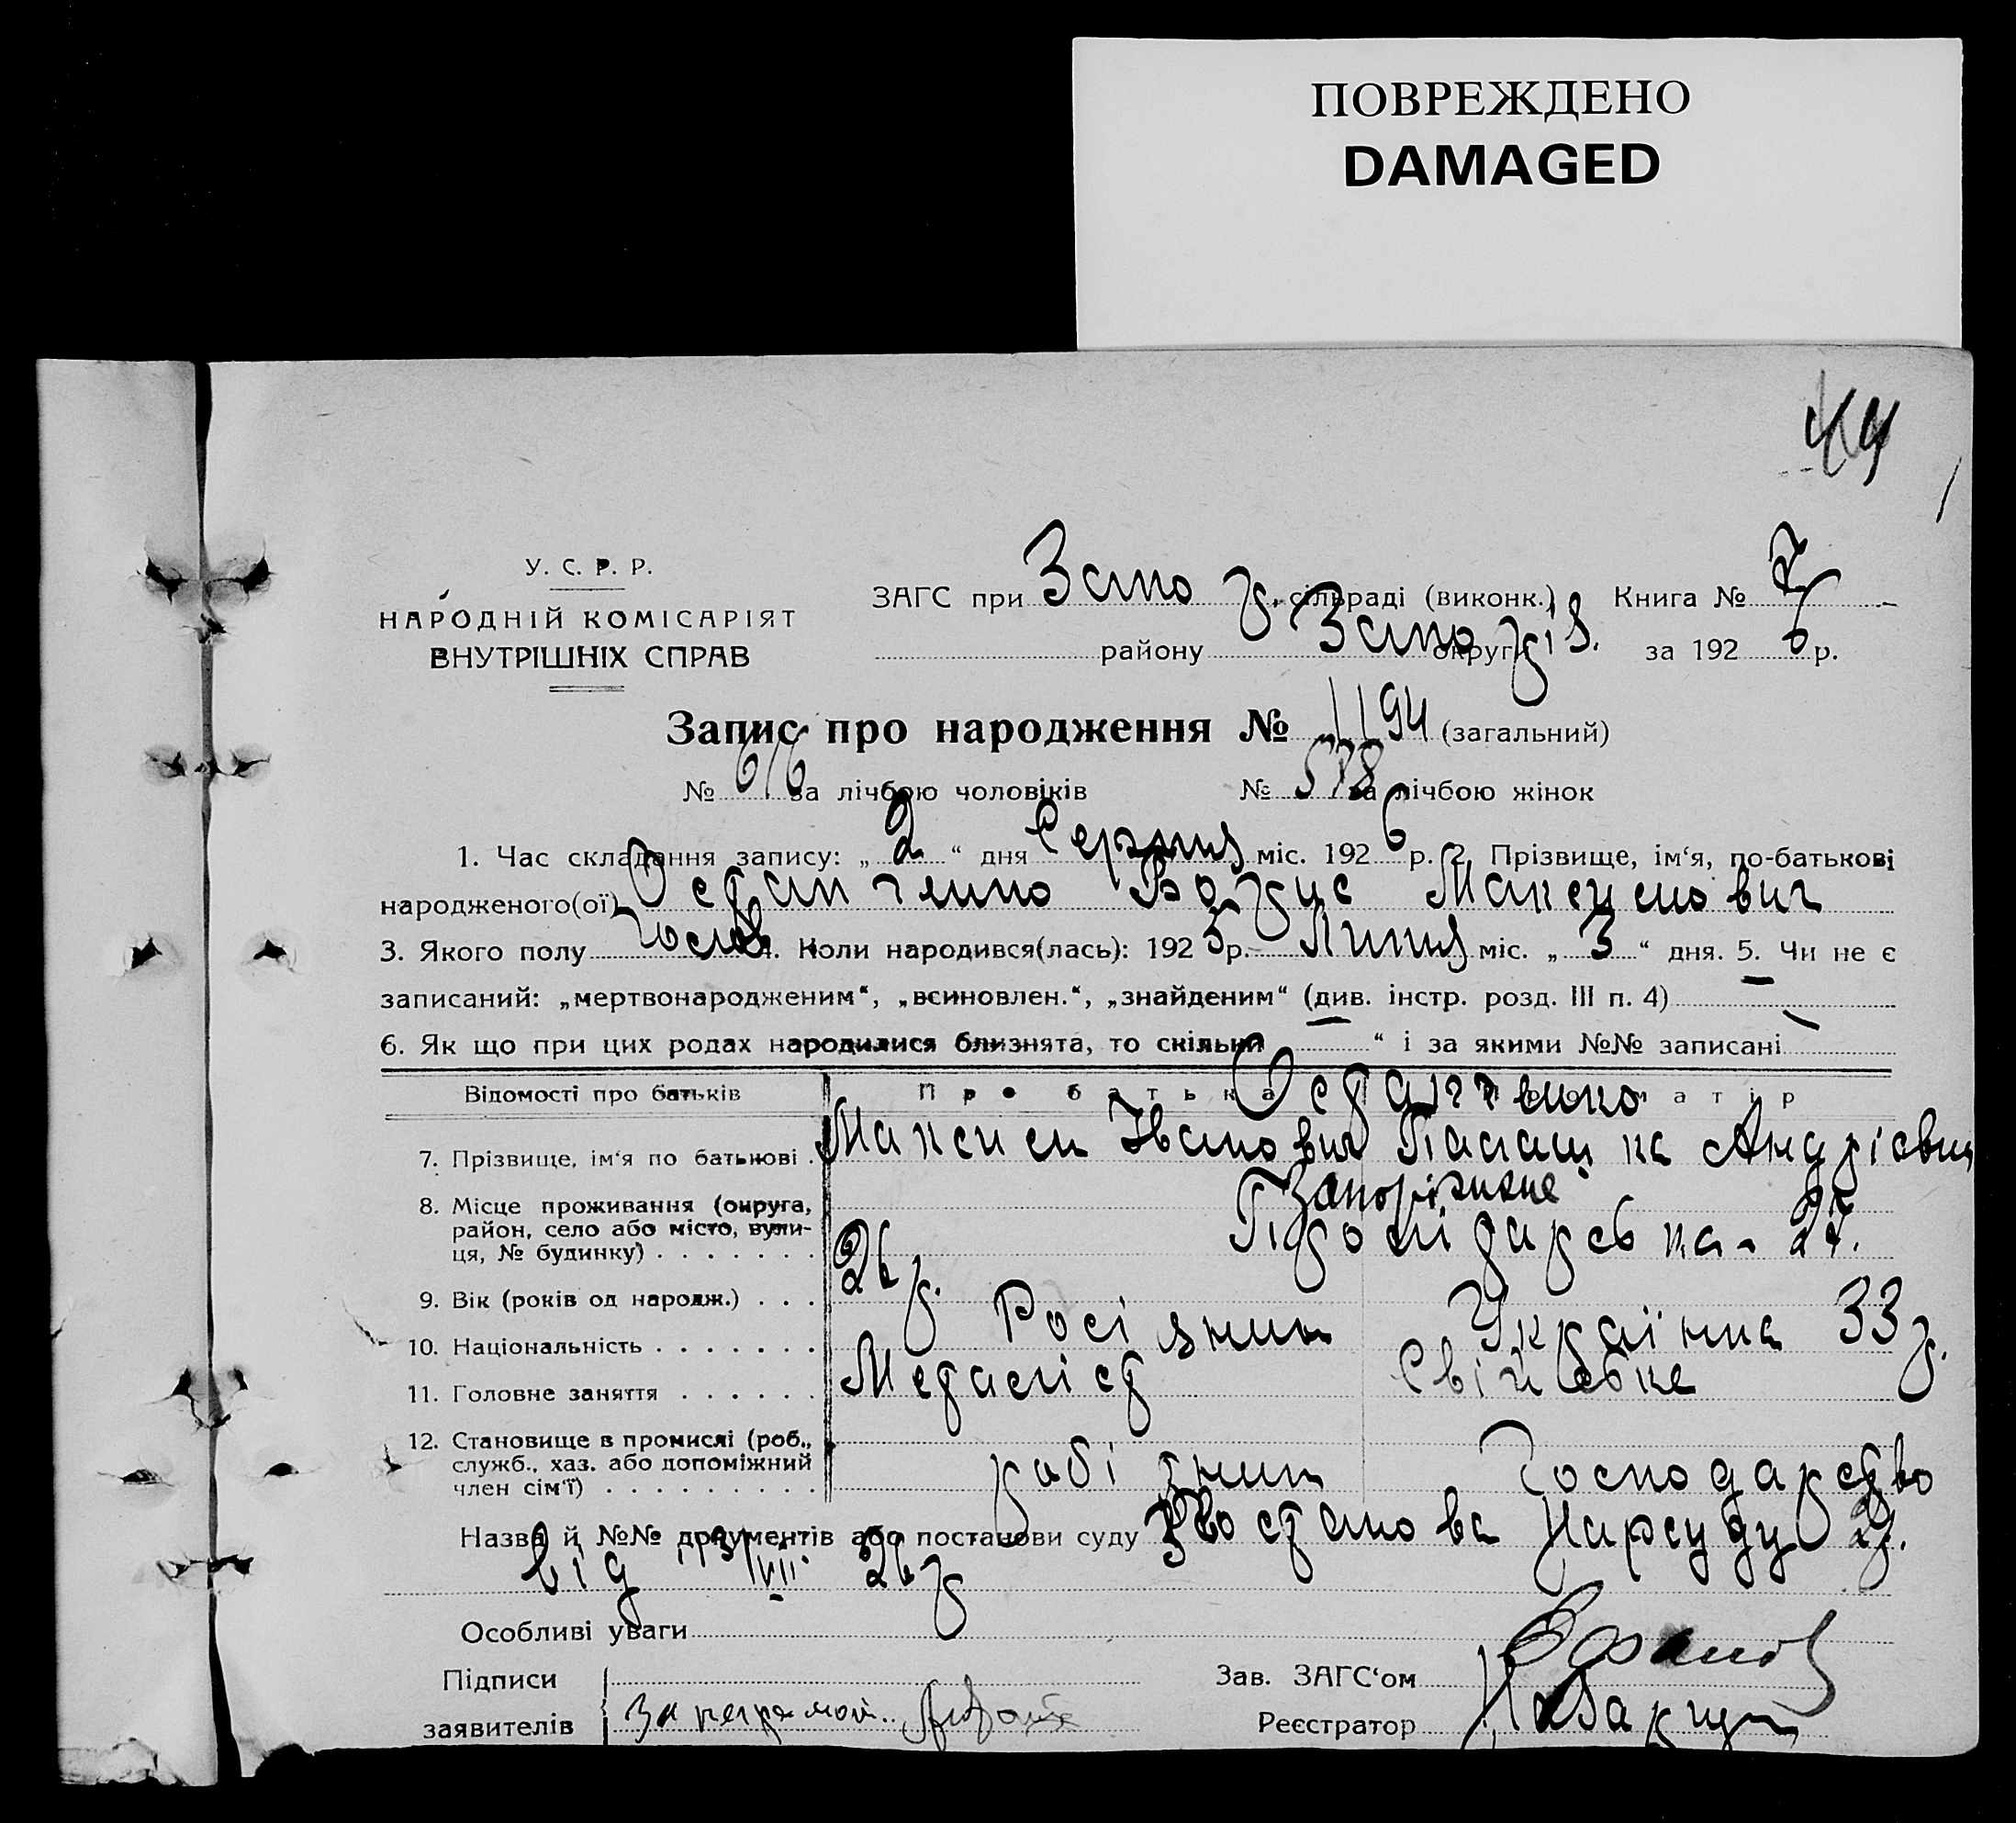 ПОВРЕЖДЕНО
DAMAGED
44
У. С. Р. Р.
НАРОДНІЙ КОМІСАРІЯТ
ВНУТРІШНІХ СПРАВ
ЗАГС при Запо р. сільраді (виконк.) Книга № 7
району Запоріз. округи за 1926 р.
Запис про народження № 1194 (загальний)
№ 616 за лічбою чоловіків № 578 за лічбою жінок
1. Час складання запису: „2“ дня Серпня міс. 1926 р. 2. Прізвище, ім‘я, по-батькові
народженого(ої) Остапченко Борис Максимович
3. Якого полу чолов 4. Коли народився(лась): 1925 р. Липня міс. „3“ дня. 5. Чи не є
записаний: „мертвонародженим“, „всиновлен.“, „знайденим“ (див. інстр. розд. III п. 4)
6. Як що при цих родах народилися близнята, то скільки “ і за якими №№ записані
Відомості про батьків Про батька Остапченко матір
7. Прізвище, ім‘я по батькові Максим Іванович Палашка Андрієвна
8. Місце проживання (округа, Запоріжжє
район, село або місто, вули-
ця, № будинку) 27.
9. Вік (років од народж.) 26 р. 33 р.
10. Національність Росіянин Українка
11. Головне заняття Металіст Свійське
12. Становище в промислі (роб.,
служб., хаз. або допоміжний
член сім‘ї) робітник Господарство
Назва й №№ документів або постанови суду Постанова Нарсуду 2 р.
від 13/VII 26 р
Особливі уваги
Підписи Зав. ЗАГС‘ом
заявителів Реєстратор